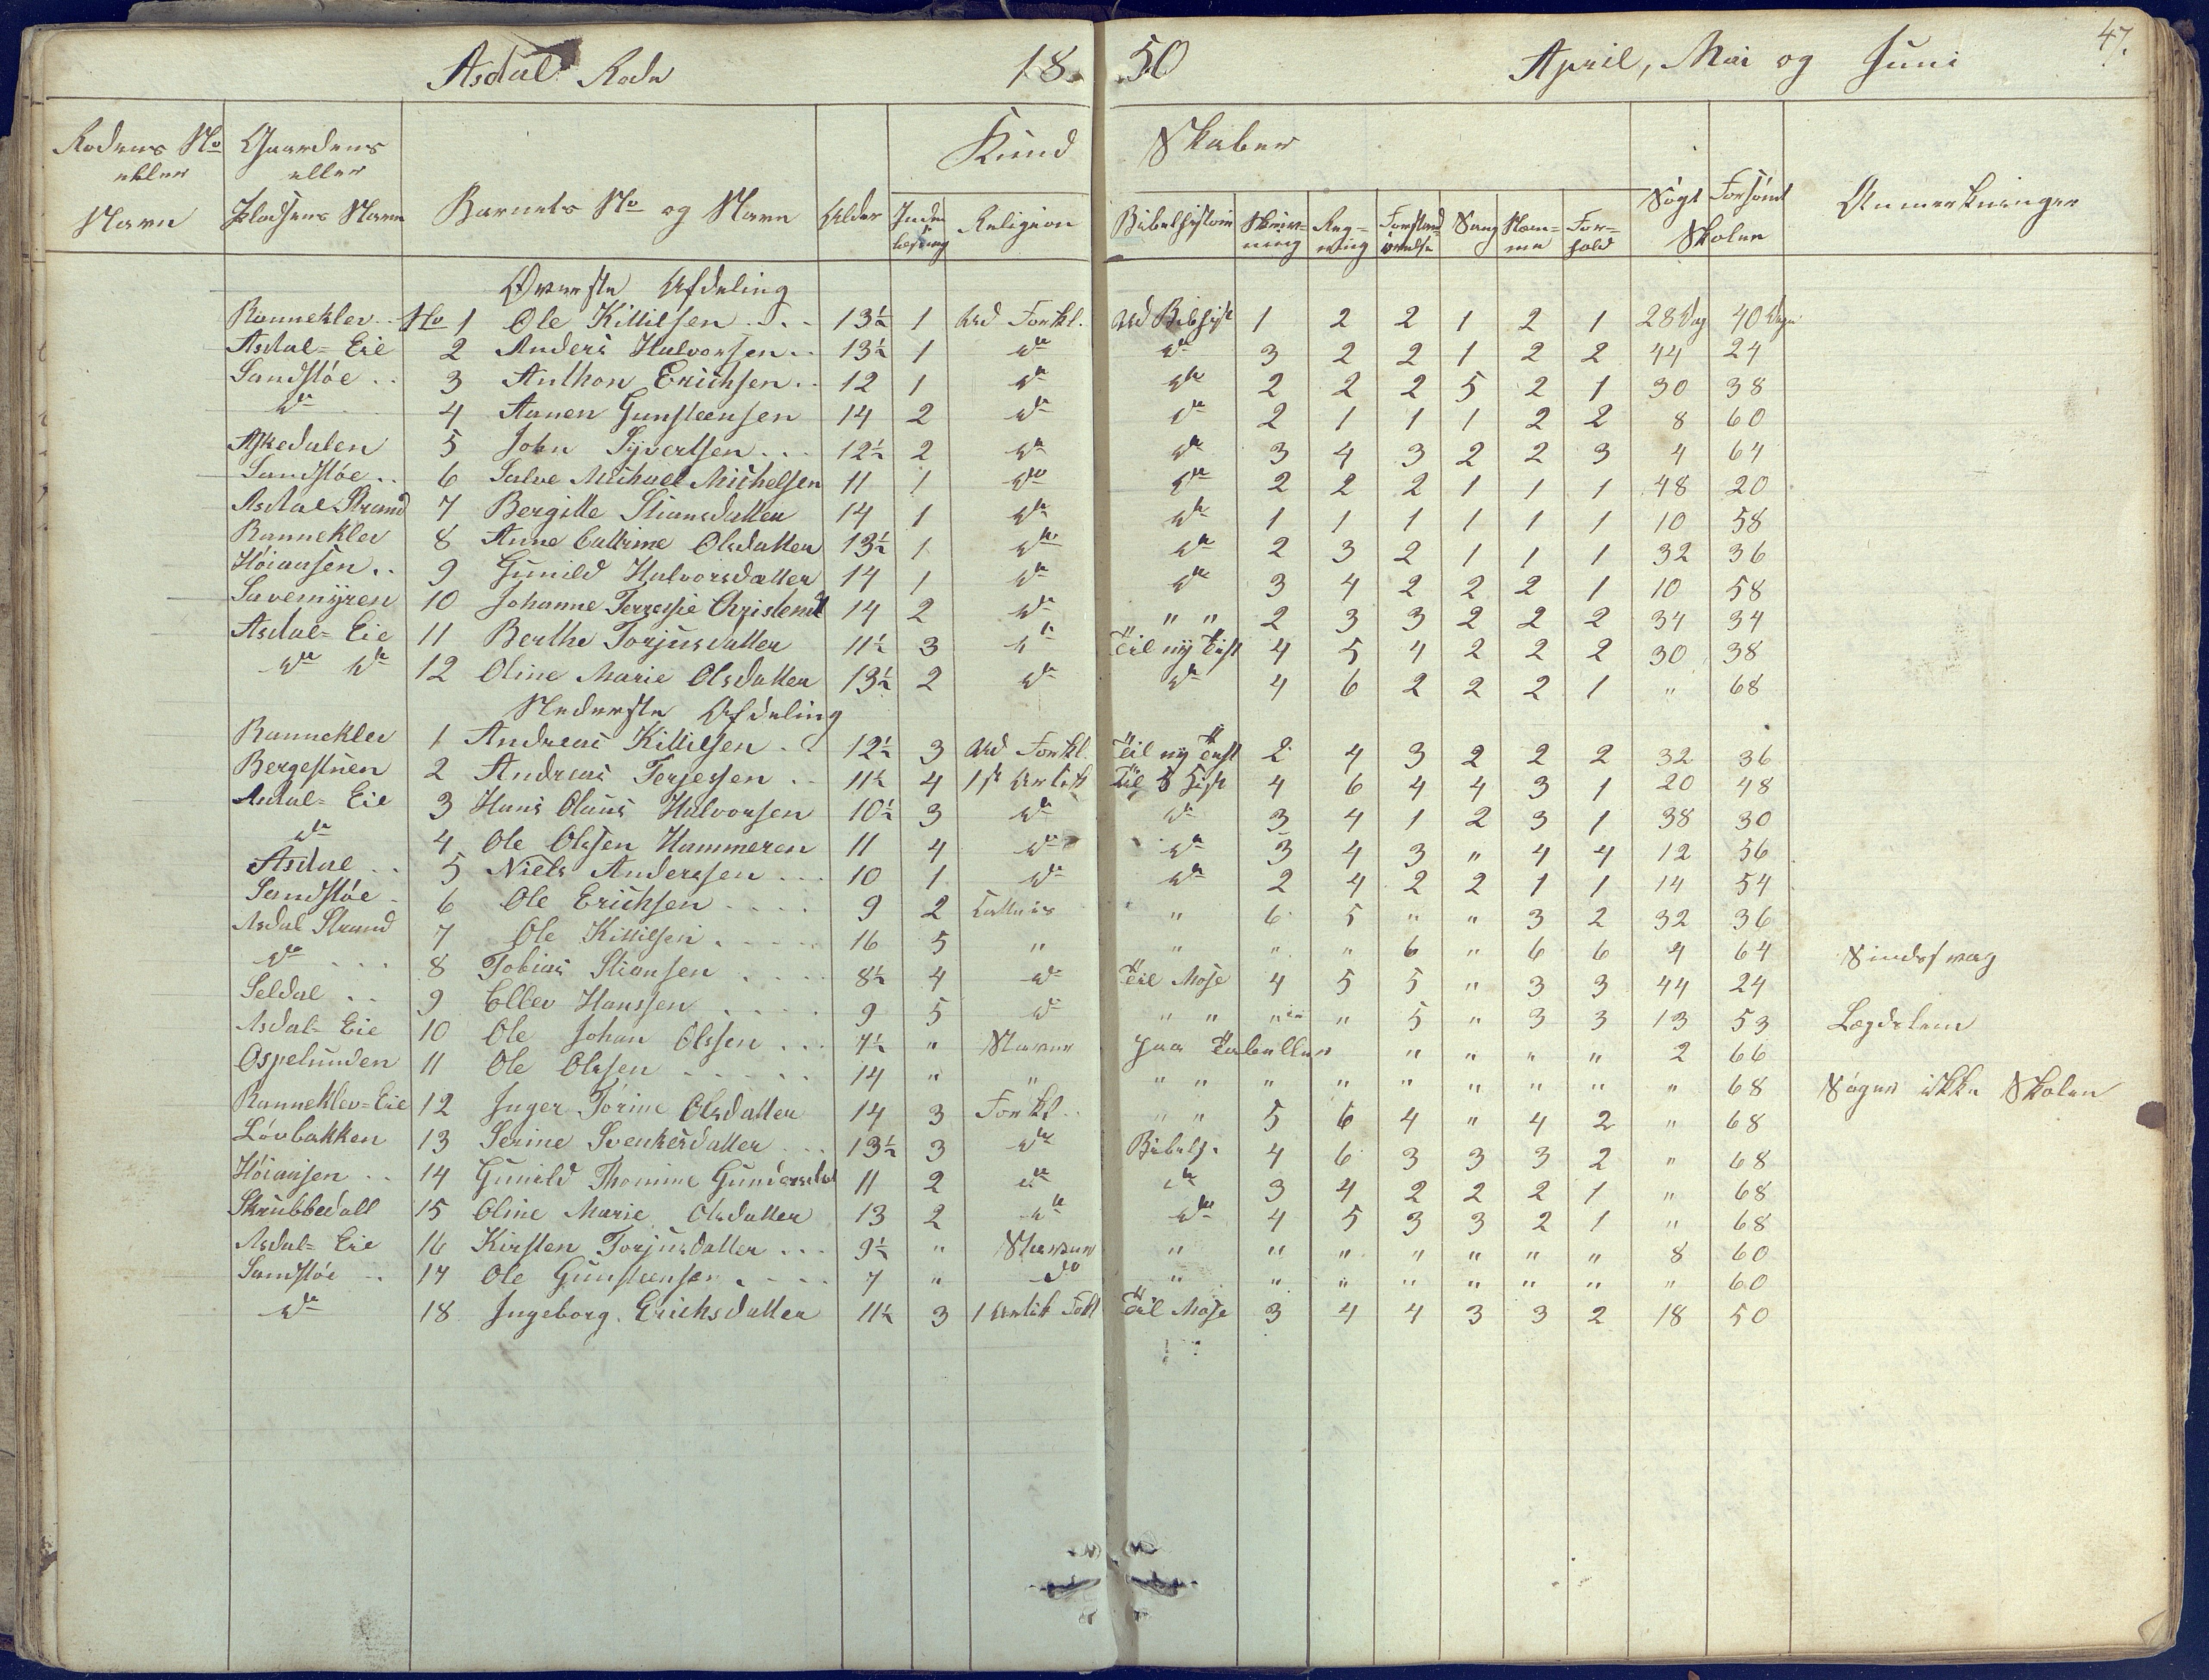 47.
Asdal Rode 1850 April, Mai og Juni
Rodens No eller Navn | Gaardens eller Pladsens Navn | Barnets No og Navn | Alder | Kundskaber | Søgt Forsømt Skolen | Anmerkninger
Inden læsning | Religion | Bibelhistorie | Skriv=ning | Reg=ning | Forstand=øvelse | Sang | Nem=me | For=hold
Øverste Afdeling
Rannekler No 1 Ole Kittilsen 13½ 1 Ud Forkl. Ud Bibhist 1 2 2 1 2 1 28 Dag 40 Dage
Asdal=Eie 2 Anders Halvorsen 13½ 1 do do 3 2 2 1 2 2 44 24
Sandstøe 3 Anthon Erichsen 12 1 do do 2 2 2 5 2 1 30 38
do 4 Aanen Gunsteensen 14 2 do do 2 1 1 1 2 2 8 60
Askedalen 5 John Syvertsen 12½ 2 do do 3 4 3 2 2 3 4 64
Sandstøe 6 Salve Michael Michelsen 11 1 do do 2 2 2 1 1 1 48 20
Asdal Strand 7 Bergitte Stiansdatter 14 1 do do 1 1 1 1 1 1 10 58
Rannekler 8 Anne Cathrine Olsdatter 13½ 1 do do 2 3 2 1 1 1 32 36
Höiaasen 9 Gunild Halvorsdatter 14 1 do do 3 4 2 2 2 1 10 58
Savemyren 10 Johanne Terressie Christensd 14 2 do " " 2 3 3 2 2 2 34 34
Asdal=Eie 11 Berthe Torjusdatter 11½ 3 do Til ny Tist 4 5 4 2 2 2 30 38
do do 12 Oline Marie Olsdatter 13½ 2 do do 4 6 2 2 2 1 " 68
Nederste Afdeling
Rannekler 1 Andreas Kittilsen 12½ 3 Ud Forkl. Til ny Test 2 4 3 2 2 2 32 36
Bergestuen 2 Andreas Terjessen 11½ 4 1ste Artik Til 5 Hist 4 6 4 4 3 1 20 48
Asdal=Eie 3 Hans Olaus Halvorsen 10½ 3 do do 3 4 1 2 3 1 38 30
do 4 Ole Olssen Hammeren 11 4 do do 3 4 3 " 4 4 12 56
Asdal 5 Niels Anderssen 10 1 do do 2 4 2 2 1 1 14 54
Sandstøe 6 Ole Erichsen 9 2 " 6 5 " " 3 2 32 36
Asdal Strand 7 Ole Kittilsen 16 5 " " " " 6 " 6 6 4 64 Sindssvag
do 8 Tobias Stiansen 8½ 4 do Til Mose 4 5 5 " 3 3 44 24
Seldal 9 Ellev Hanssen 9 5 do " " " " 5 " 3 3 13 53 Lægdslem
Asdal=Eie 10 Ole Johan Olssen 7½ " Staver paa Tabeller " " " " 2 66
Ospelunden 11 Ole Olssen 14 " " " " " " " " " " " 68 Søger ikke Skolen
Rannekler=Eie 12 Inger Torine Olsdatter 14 3 Forkl " " 5 6 4 " 4 2 " 68
Løvbakken 13 Serine Svenkesdatter 13½ 3 do Bibelh. 4 6 3 3 3 2 " 68
Höiaasen 14 Gunild Thomine Gundersdat 11 2 do do 3 4 2 2 2 1 " 68
Skrubbedall 15 Oline Marie Olsdatter 13 2 do do 4 5 3 3 2 1 " 68
Asdal=Eie 16 Kirsten Torjusdatter 9½ " Staver " " " " " " " 8 60
Sandstøe 17 Ole Gunsteensen 7 " do " " " " " " " " 60
do 18 Ingeborg Erichsdatter 11½ 3 1 Artik Fokl Til Mose 3 4 4 3 3 2 18 50